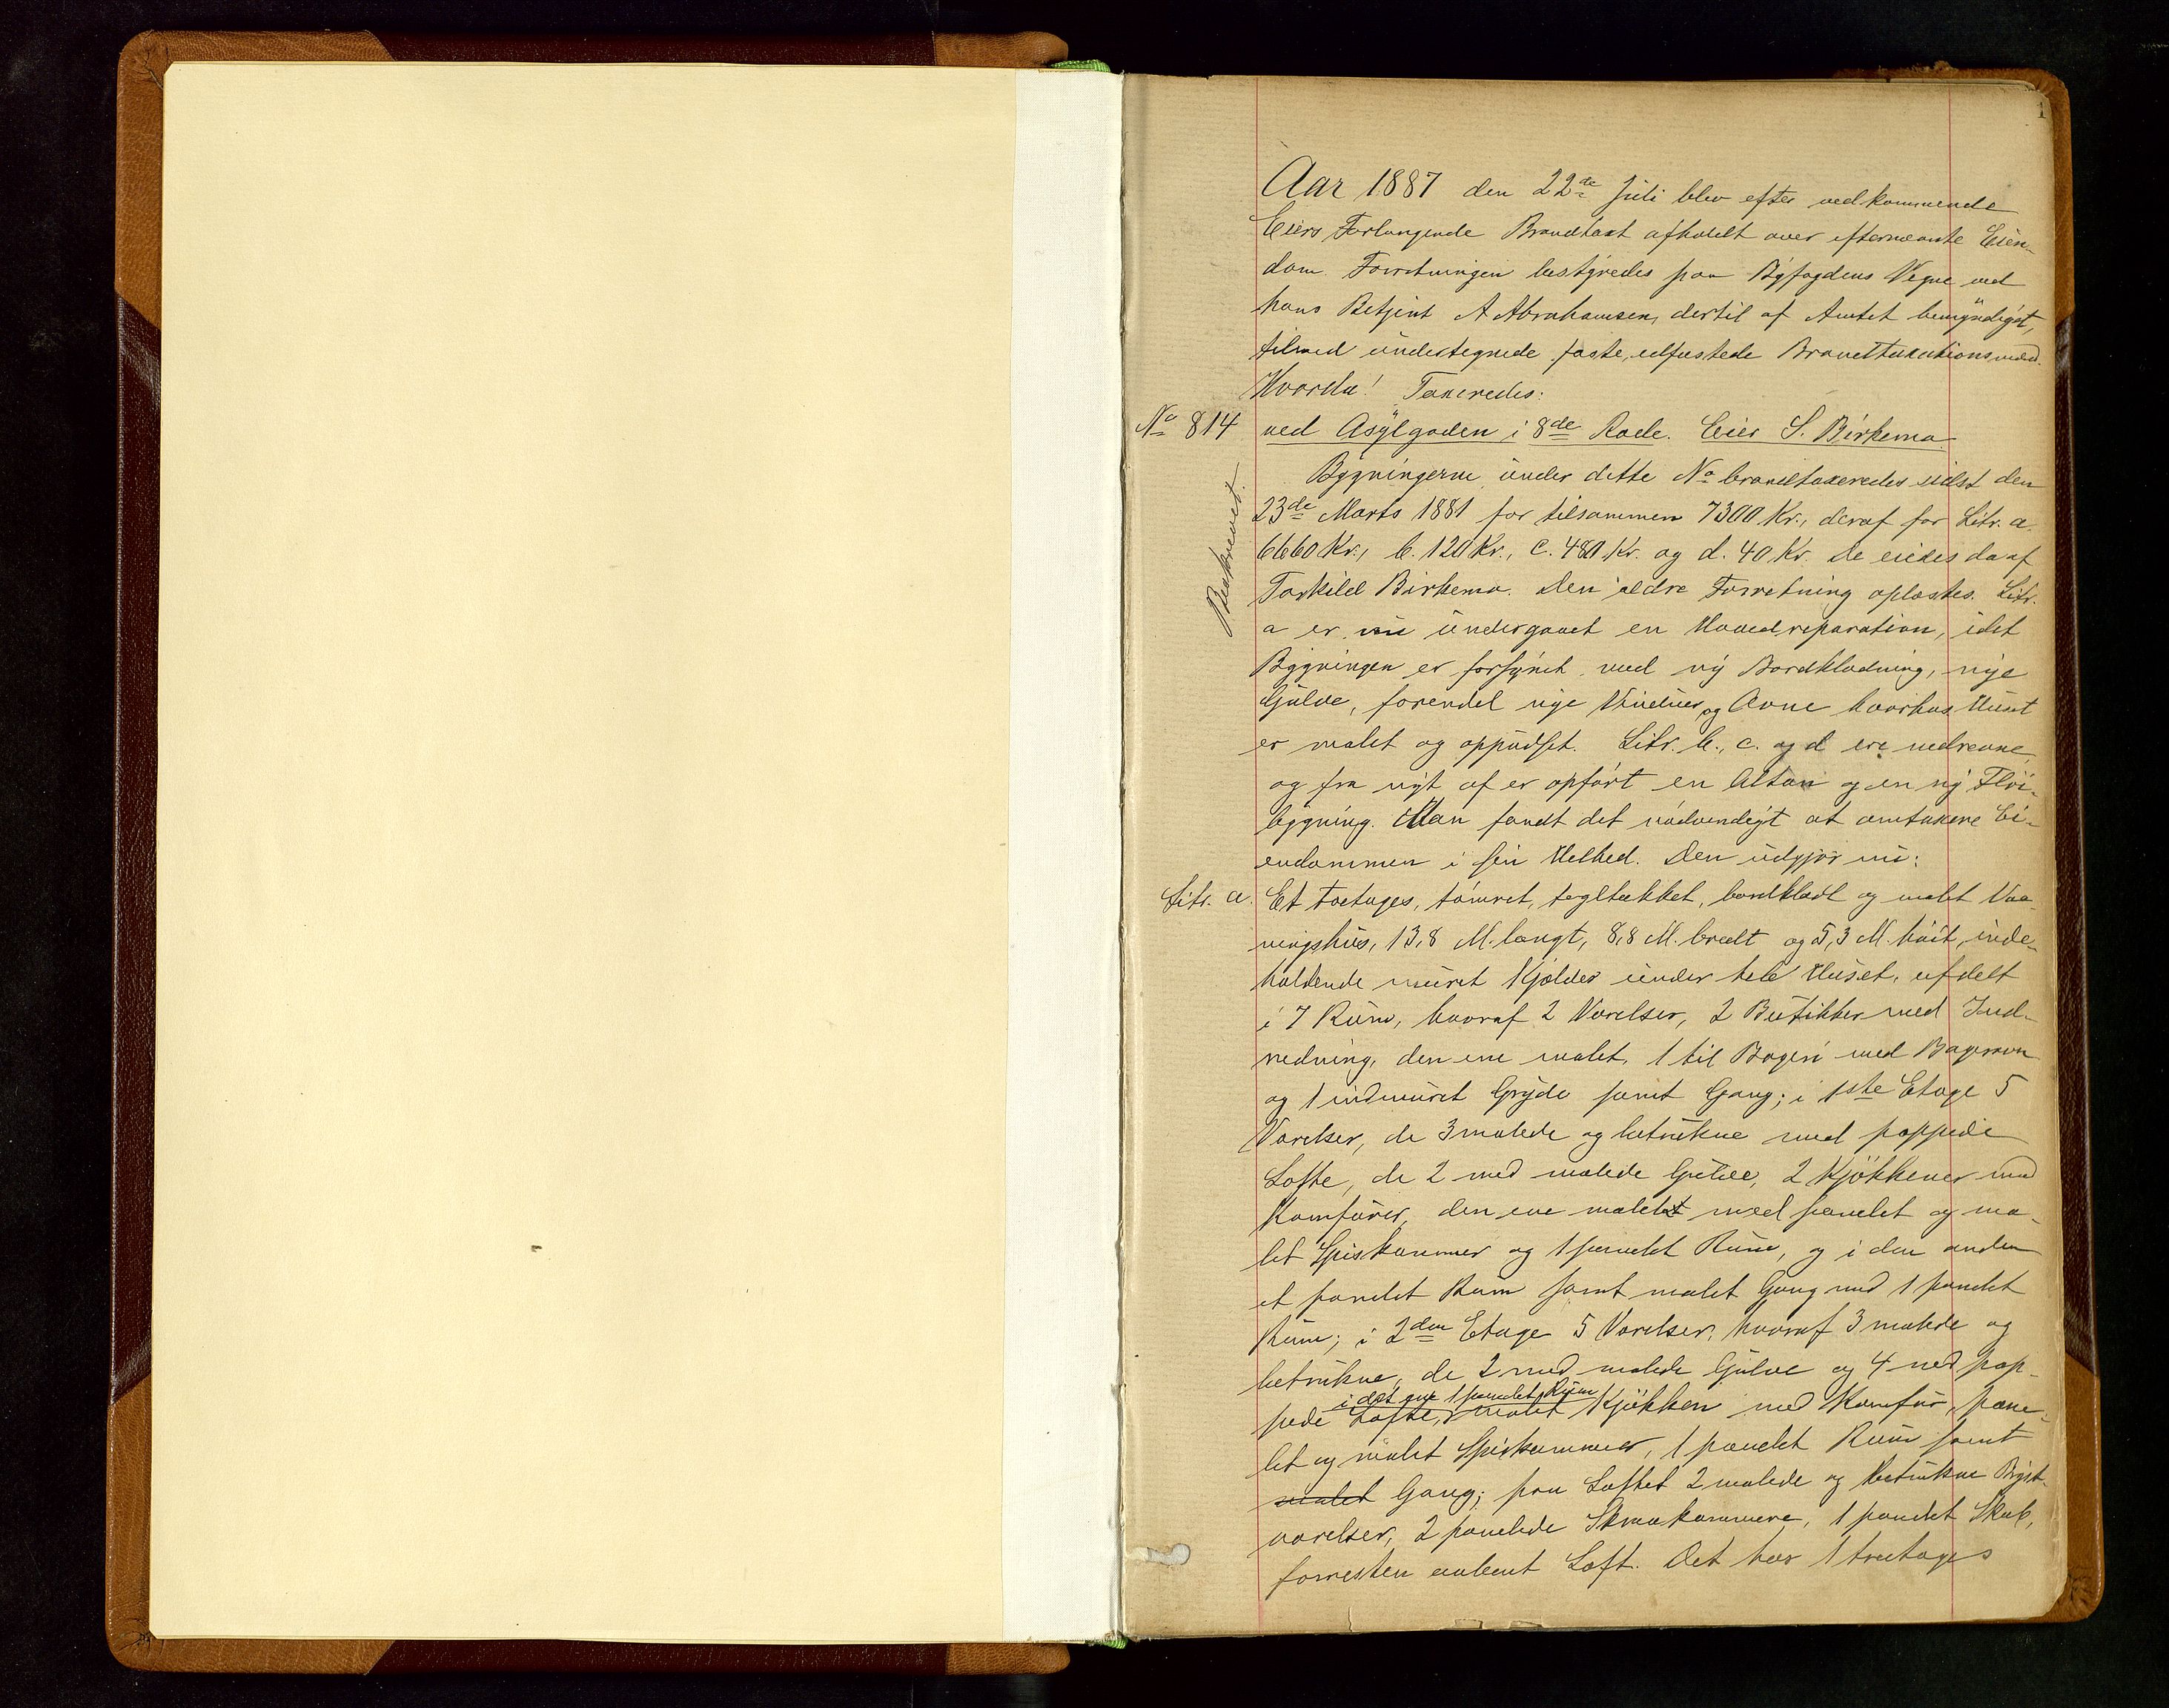 1
Aar 1887 den 22de Juli blev efter vedkommende
Eiers Forlangende Brandtaxt afholdt over efternævnte Eien-
dom. Forretningen bestyredes paa Byfogdens Vegne ved
hans Betjent A Abrahamsen, dertil af Amtet bemyndiget,
tilmed undertegnede faste, edfæstede Brandtaxationsmænd.
Hvorda! Taxeredes:
No 814 ved Asylgaden i 8de Rode. Eier S. Birkemo
Beskrevet.
Bygningerne under dette No brandtaxeredes sidst den
23de Marts 1881 for tilsammen 7300 Kr., deraf for Litr. a.
6660 Kr., b. 120 Kr., c. 480 Kr. og d. 40 Kr. De eiedes da af
Torkild Birkemo. Den ældre Forretning oplæstes. Litr.
a er nu undergaaet en Hovedreparation, idet
Bygningen er forsynet med ny Bordklædning, nye
Gulve, forendel nye Vinduer og Ovne hvorhos Huset
er malet og oppudset. Litr. b., c. og d ere nedrevne,
og fra nyt af er opført en Altan og en ny Flöi-
bygning. Man fandt det nødvendigt at omtaxere Ei-
endommen i sin Helhed. Den udgjør nu:
Litr. a. Et toetages, tømret, tegltækket, bordklædt og malet Vaa-
ningshus, 13,8 M. langt, 8,8 M. bredt og 5,3 M. høit, inde-
holdende muret Kjælder under hele Huset, afdelt
i 7 Rum, hvoraf 2 Værelser, 2 Butikker med Ind-
redning, den ene malet, 1 til Bageri med Bagerovn
og 1 indmuret Gryde samt Gang; i 1ste Etage 5
Værelser, de 3 malede og betrukne med pappede
Lofte, de 2 med malede Gulve, 2 Kjøkkener med
Komfurer, den ene malet med panelet og ma-
let Spiskammer og 1 panelet Rum, og i den anden
et panelet Rum samt malet Gang med 1 panelet
Rum; i 2den Etage 5 Værelser, hvoraf 3 malede og
betrukne, de 2 med malede Gulve og 4 med pap-
i det ene 1 panelet Rum
pede Lofte, malet Kjøkken med Komfur, pane-
let og malet Spiskammer, 1 panelet Rum samt
malet Gang; paa Loftet 2 malede og betrukne Qvist-
værelser, 2 panelede Skraakammere, 1 panelet Skab,
forresten aabent Loft. Det har 1 tretages